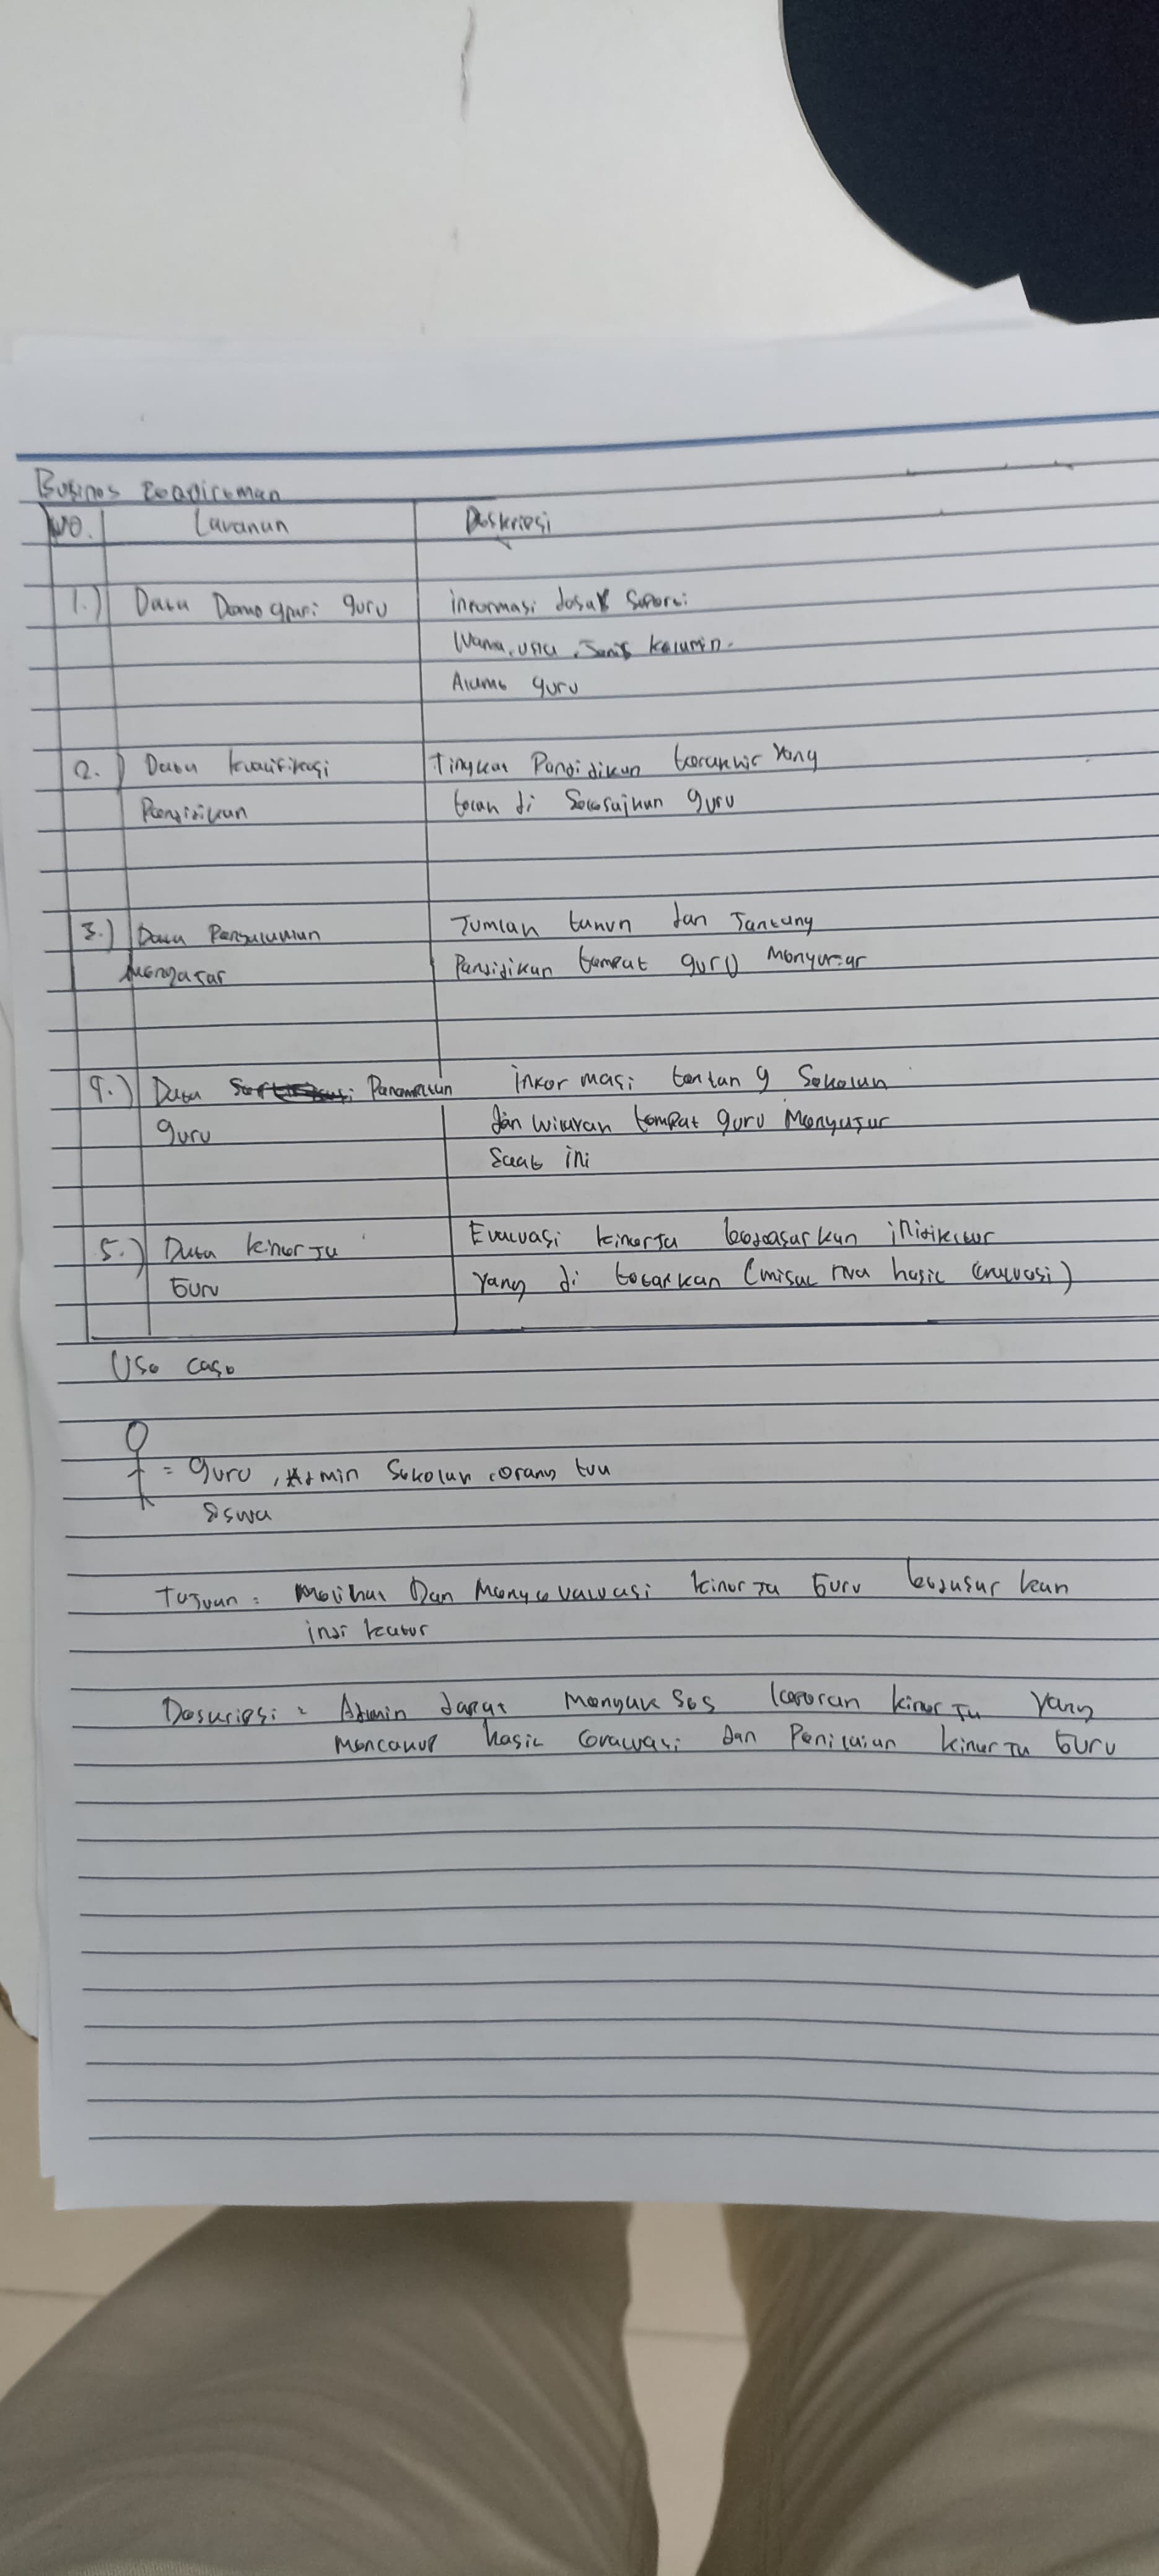 Busines Requiremen
No. Layanan Deskripsi
1.) Data Demografi guru informasi dasar seperti
Nama, usia, Jenis kelamin.
Alamat guru
2.) Data kualifikasi Tingkat Pendidikan terakhir yang
Pendidikan telah di selesaikan guru
3.) Data Pengalaman Jumlah tahun dan Jenjang
Mengajar Pendidikan tempat guru Mengajar
4.) Data Penempatan informasi tentang Sekolah
guru dan wilayah tempat guru Mengajar
Saat ini
5.) Data kinerja Evaluasi kinerja berdasarkan indikator
Guru yang di tetapkan (misal nya hasil evaluasi)
Use case
= guru, Admin Sekolah, orang tua
siswa
Tujuan = Melihat Dan Mengevaluasi kinerja Guru berdasarkan
indikator
Deskripsi = Admin dapat Mengakses laporan kinerja yang
Mencakup hasil evaluasi dan Penilaian kinerja Guru